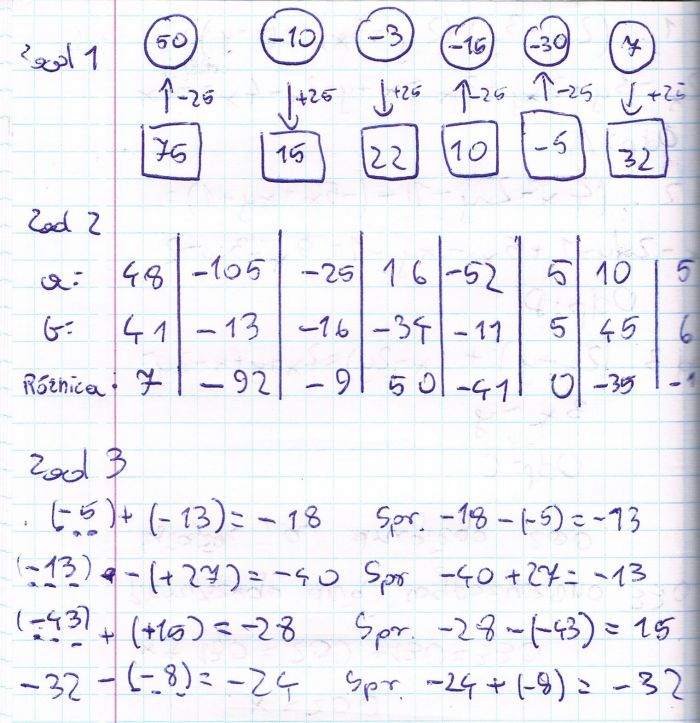 Zad 1 50 -10 -3 -15 -30 7
↑-25 ↓+25 ↓+25 ↑-25 ↑-25 ↓+25
75 15 22 10 -5 32
Zad 2
a: 48 -105 -25 16 -52 5 10 5
b: 41 -13 -16 -34 -11 5 45 6
Różnica: 7 -92 -9 50 -41 0 -35 -1
Zad 3
(-5) + (-13) = -18 Spr. -18 - (-5) = -13
(-13) - (+27) = -40 Spr -40 + 27 = -13
(-43) + (+15) = -28 Spr. -28 - (-43) = 15
-32 - (-8) = -24 Spr. -24 + (-8) = -32